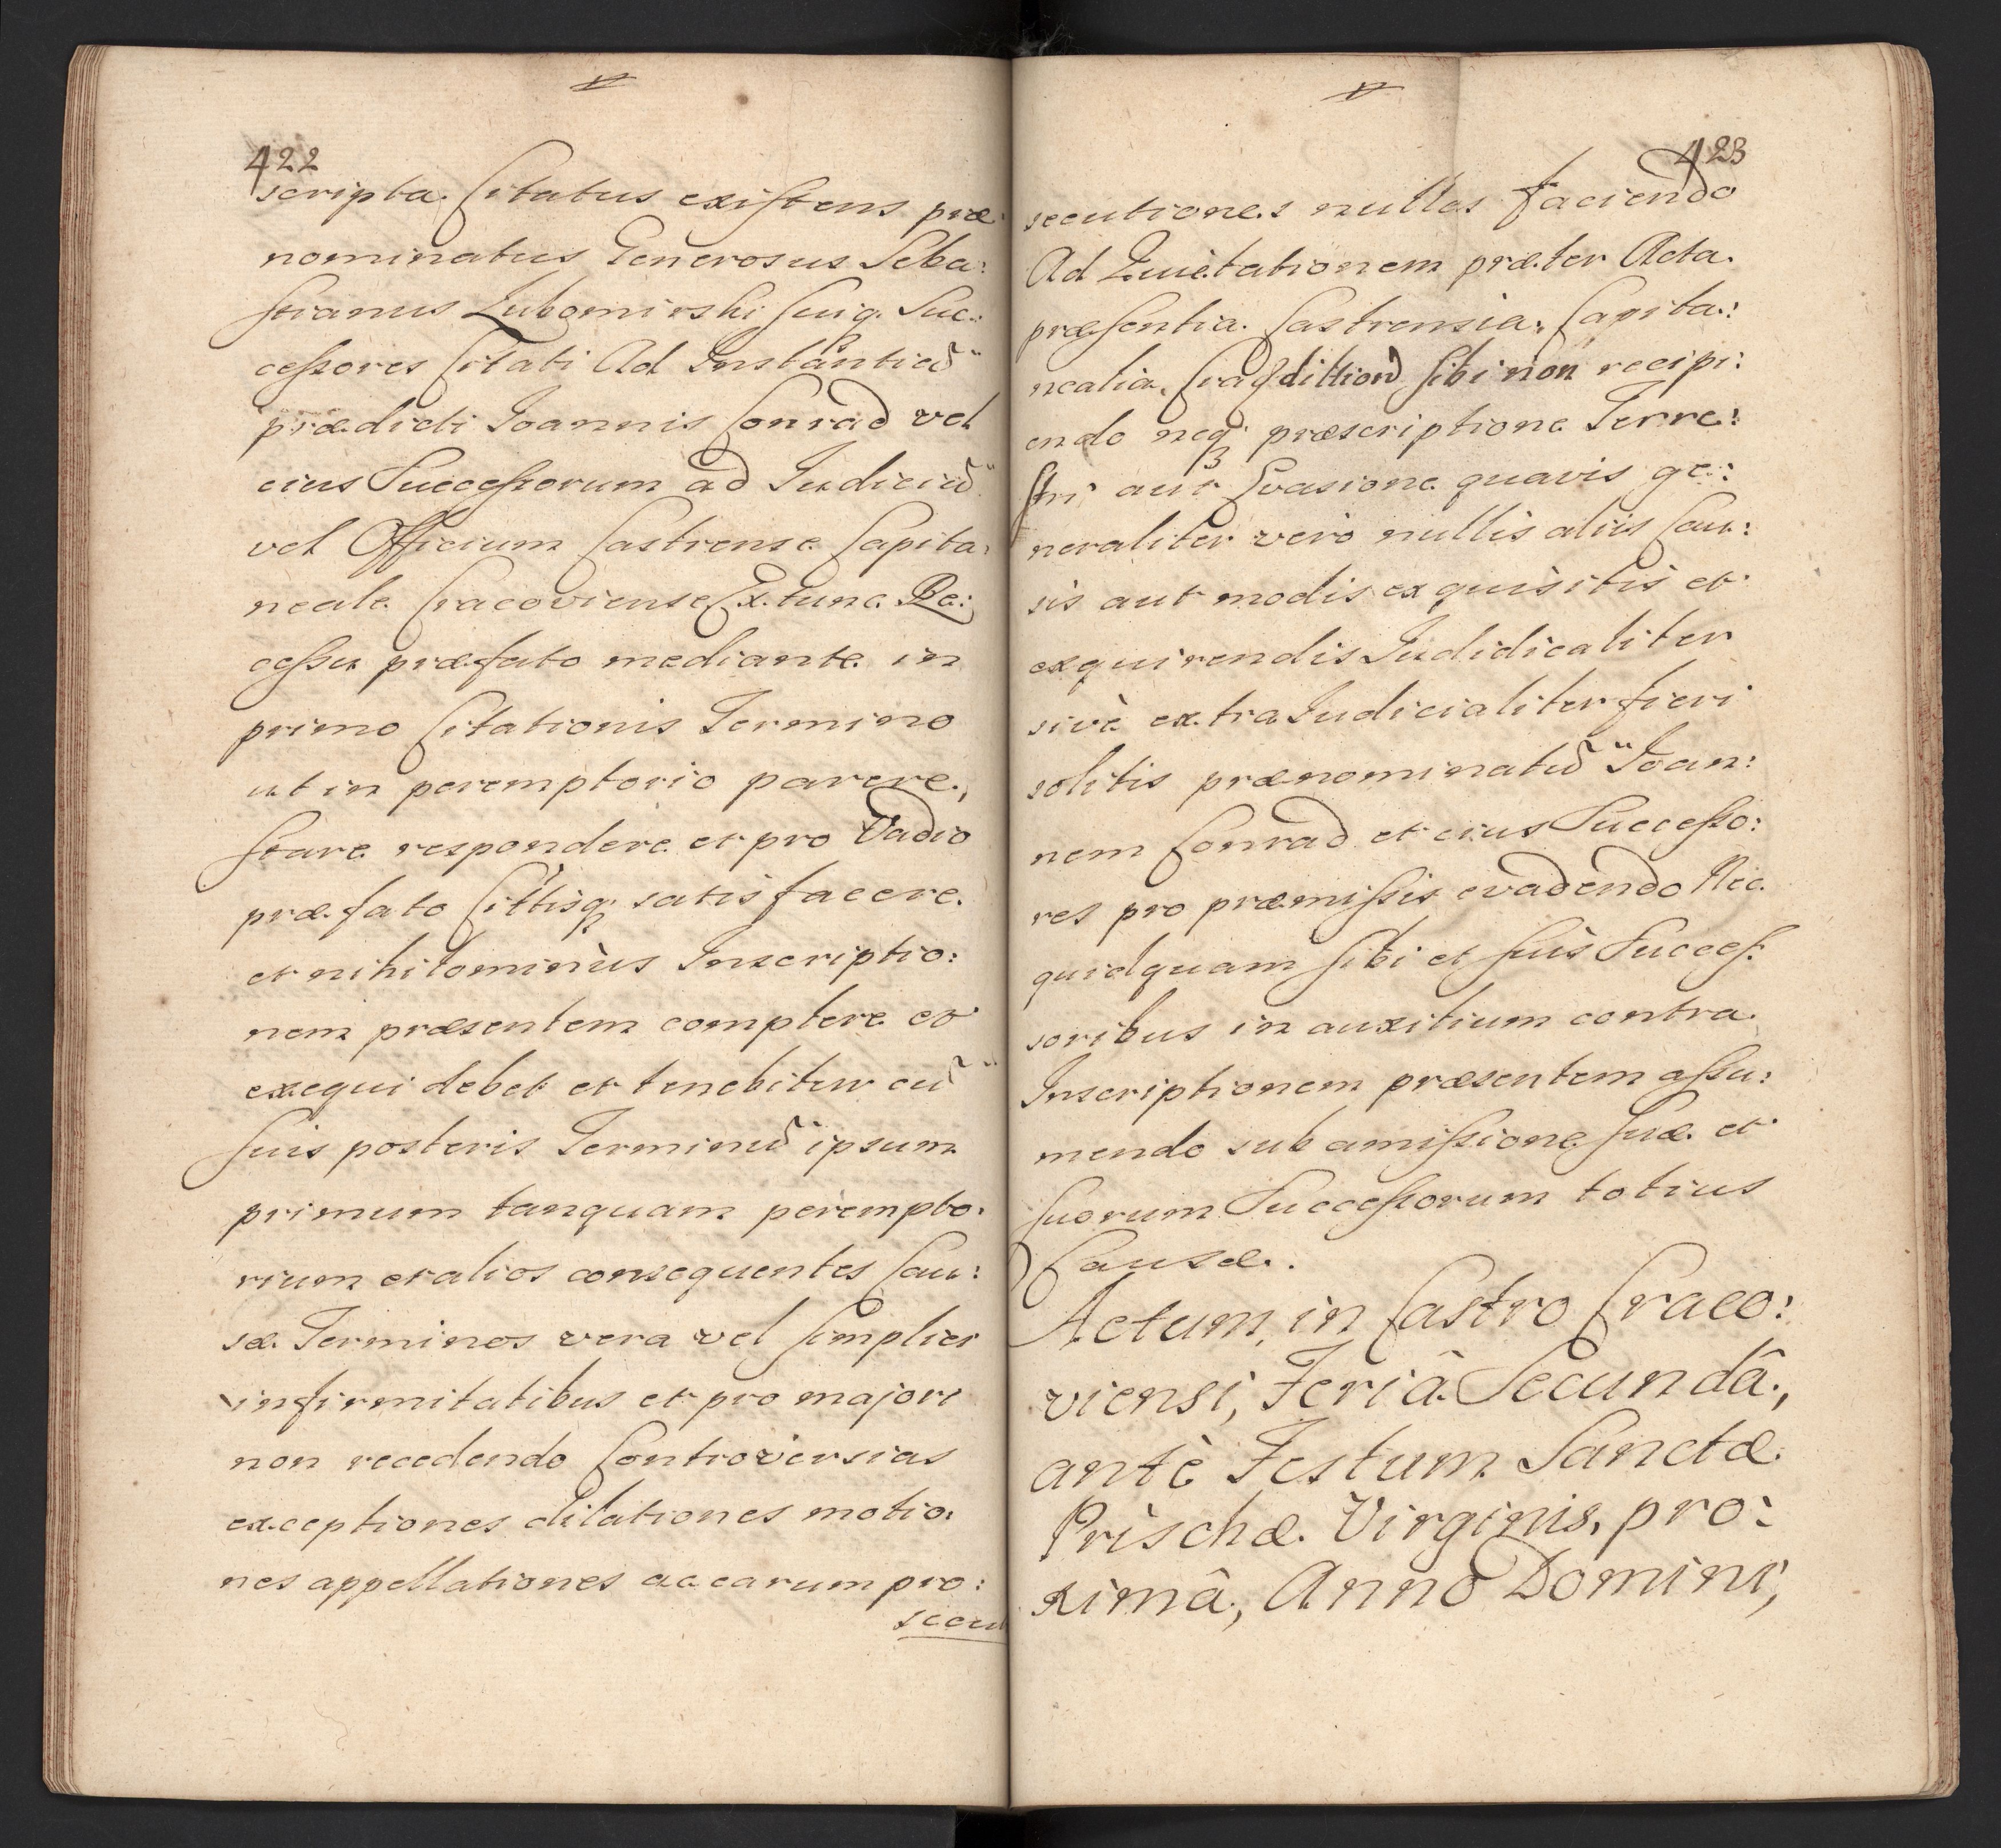 422
scripta. Citatus existens præ:
nominatus Generosus Seba:
stianus Lubomirski suiq. Suc:
cessores Citati Ad Instantiã
prædicti Joannis Conrad vel
eius Successorum ad Judiciũ
vel Officium Castrense Capita:
neale Cracoviense Ex tunc Re:
cessu præfato mediante in
primo Citationis Termino
ut in peremptorio parere,
stare respondere et pro Vadio
præfato satisfacere
et nihilominùs Inscriptio:
nem præsentem complere et
exequi debet et tenebitur cũ
suis posteris Terminũ ipsum
primum tanquam perempto:
rium et alios consequentes Cau:
sæ Terminos vera vel simplici
infirmitatibus et pro majori
non recedendo Controversias
exceptiones dilationes motio:
nes appellationes ac earum pro:
secu
423
secutiones nullas faciendo
Ad Quietationem præter Acta
præsentia Castrensia, Capita:
nealia, sibi non recipi:
endo neq; præscriptione Terre:
stri aut Evasione quavis ge:
neraliter verò nullis aliis Cau:
sis aut modis exquisitis et
exquirendis Judidicaliter
sivè extraJudicialiter fieri
solitis prænominatũ Joan:
nem Conrad et eius Successo:
res pro præmissis evadendo Nec
quidquam sibi et suis Succes:
soribus in auxilium contra
Inscriptionem præsentem assu:
mendo sub amissione suæ et
suorum Successorum totius
Causæ.
Actum, in Castro Craco:
viensi, Feriâ Secundâ,
antè Festum Sanctæ
Prischæ Virginis, pro:
ximâ, Anno Domini,